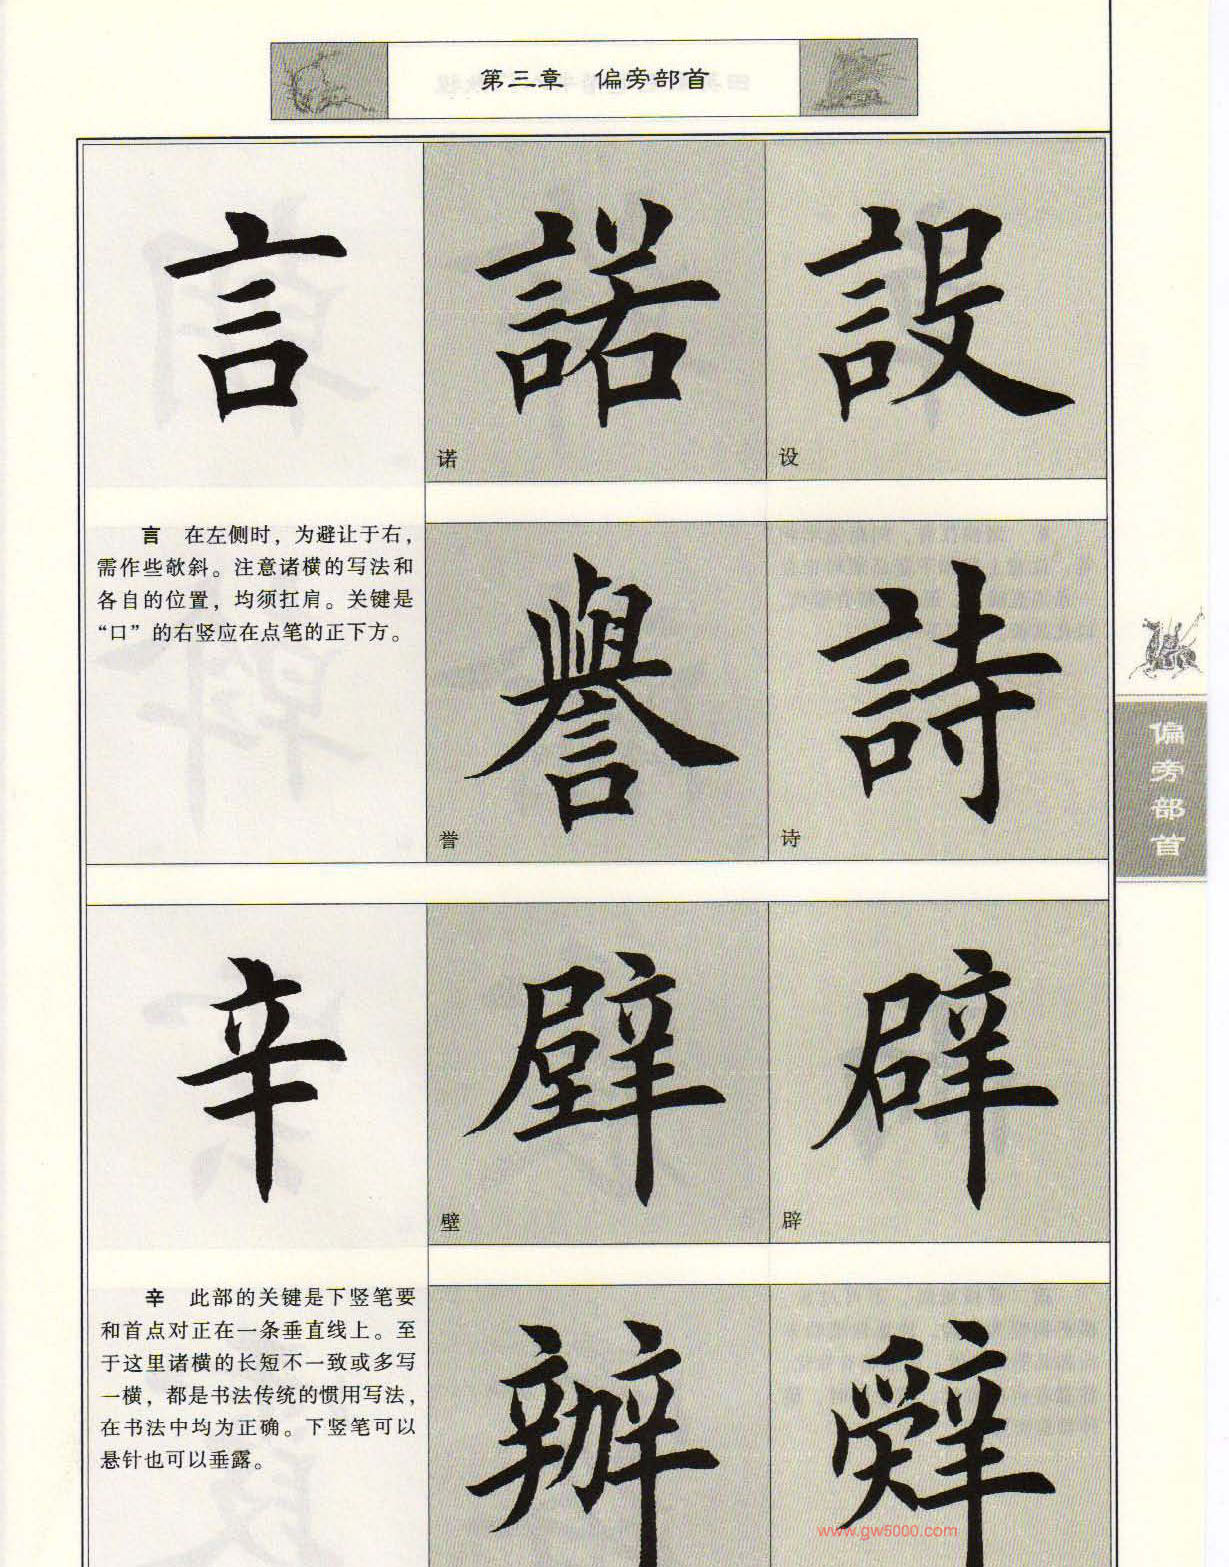 第三章 偏旁部首
言
諾
設
诺
设
言 在左侧时，为避让于右，
需作些欹斜。注意诸横的写法和
各自的位置，均须扛肩。关键是
“口”的右竖应在点笔的正下方。
譽
詩
誉
诗
偏旁部首
辛
壁
辟
壁
辟
辛 此部的关键是下竖笔要
和首点对正在一条垂直线上。至
于这里诸横的长短不一致或多写
一横，都是书法传统的惯用写法，
在书法中均为正确。下竖笔可以
悬针也可以垂露。
辦
辭
www.gw5000.com